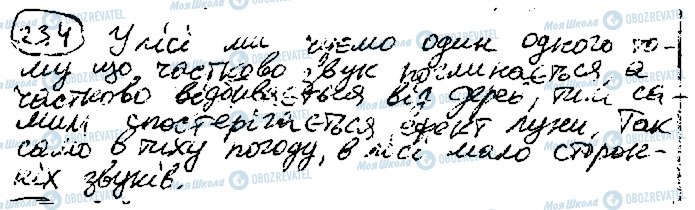 23.4 У лісі ми чуємо один одного то-
му що, частково звук поглинається, а
частково відбивається від дерев, тим са-
мим спостерігається ефект луни. Так
само в тиху погоду, в лісі мало сторон-
ніх звуків.